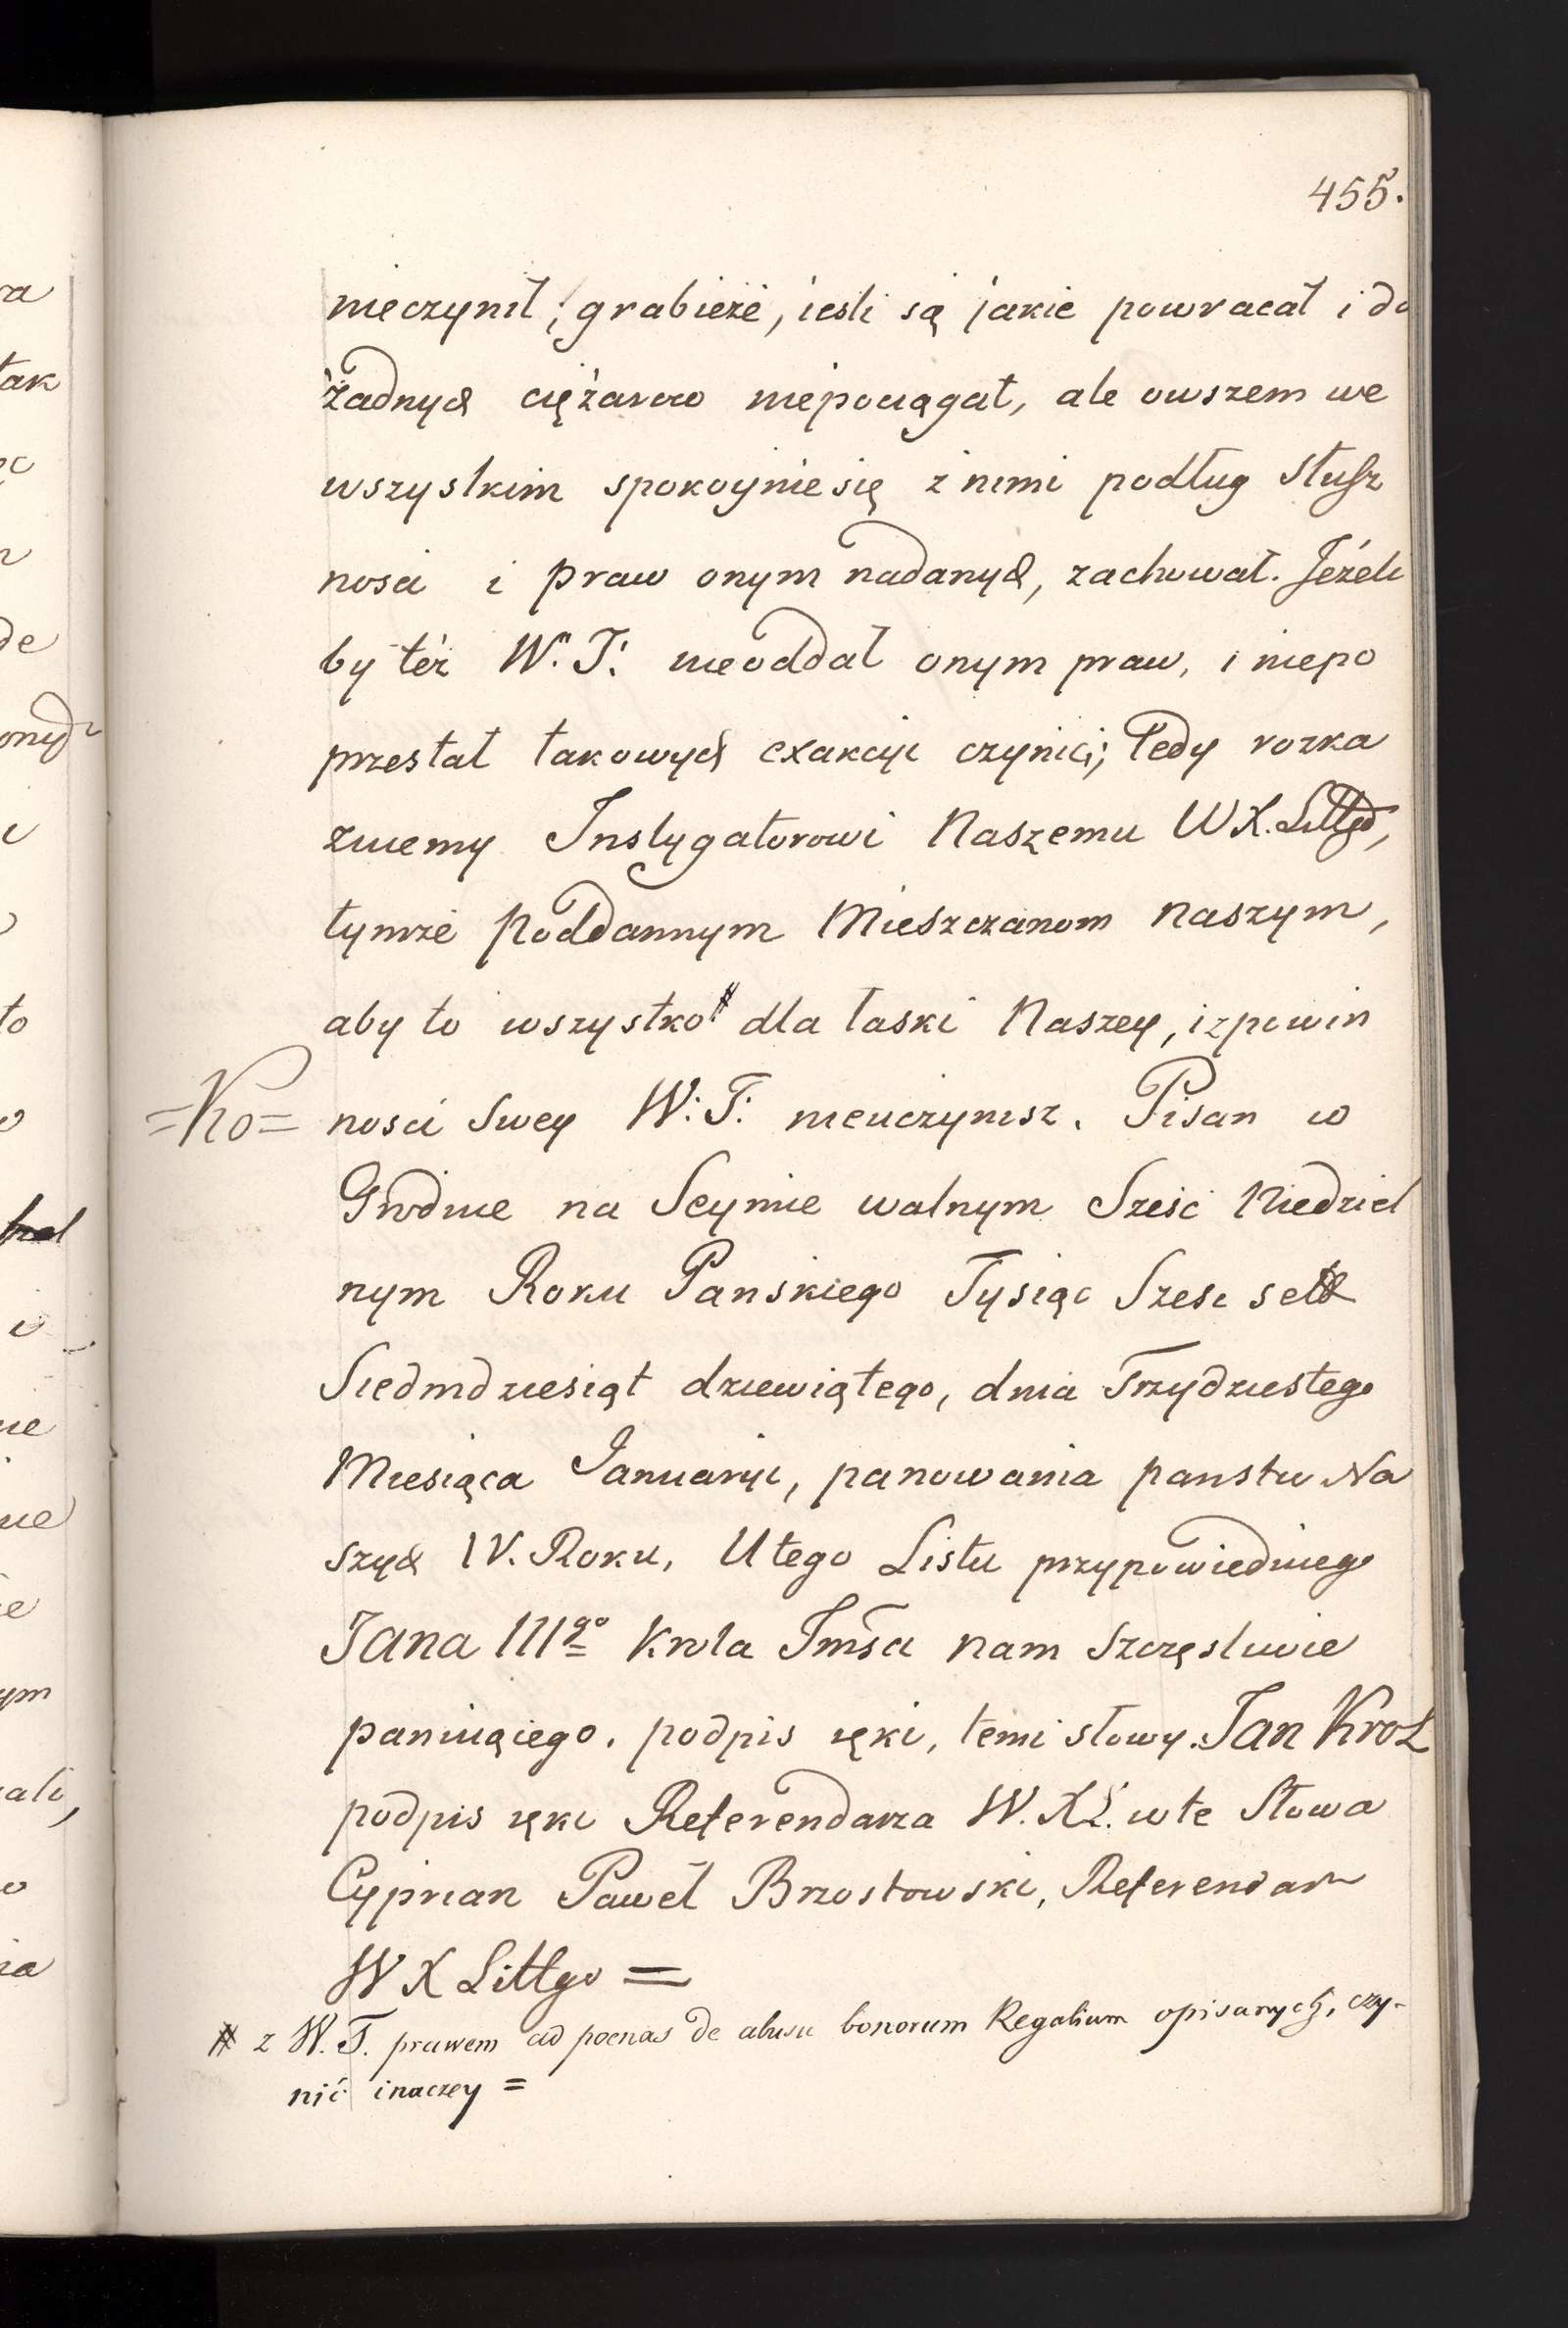 455.
nieczynił; grabieże, iesli są jakie powracał i do
żadnych ciężarow niepociągał, ale owszem we
wszystkim spokoynie się z nimi podług słusz
nosci i praw onym nadanych, zachował. Jeżeli
by też W. T: nieoddał onym praw, i niepo
przestał takowych exakcyi czynić; Tedy rozka
zuiemy Instygatorowi Naszemu W X. Littgo,
tymże Poddannym Mieszczanom Naszym,
aby to wszystko # dla łaski Naszey, i z powin
=Ko= nosci Swey W: T: nieuczynisz. Pisan w
Grodnie na Seymie walnym Sześć Niedziel
nym Roku Panskiego Tysiąc Szesc set
Siedmdziesiąt dziewiątego, dnia Trzydziestego
Miesiąca Januaryi, panowania panstw Na
szych IV. Roku, U tego Listu przypowiedniego
Jana III go Krola Jmsci nam Szczęsliwie
panuiąiego. podpis ręki, temi słowy. Jan Krol
podpis ręki Referendarza W. X L. w te Słowa
Cyprian Paweł Brzostowski, Referendarz
W X Littgo =
# z W. T. prawem ad poenas de abusu bonorum Regalium opisanych, czy-
nić inaczey =